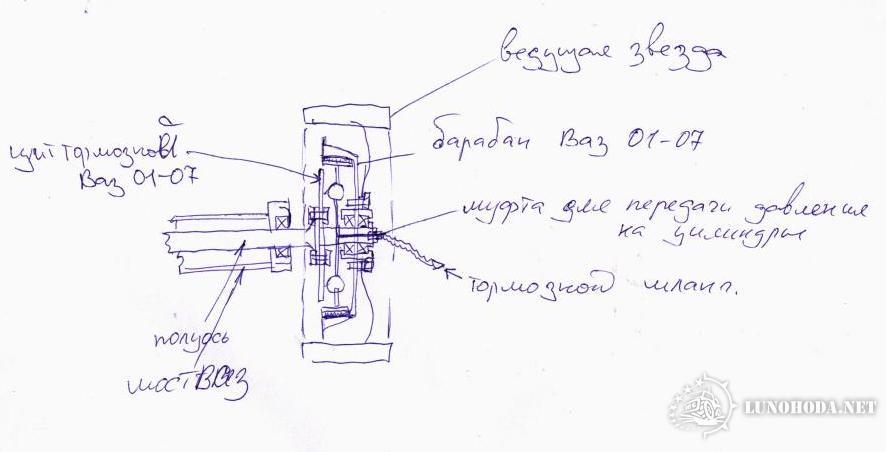 ведущая звезда
барабан Ваз 01-07
щит тормозной
Ваз 01-07
муфта для передачи давления
на цилиндры
тормозной шланг.
полуось
мост ВАЗ
LUNOHODA.NET